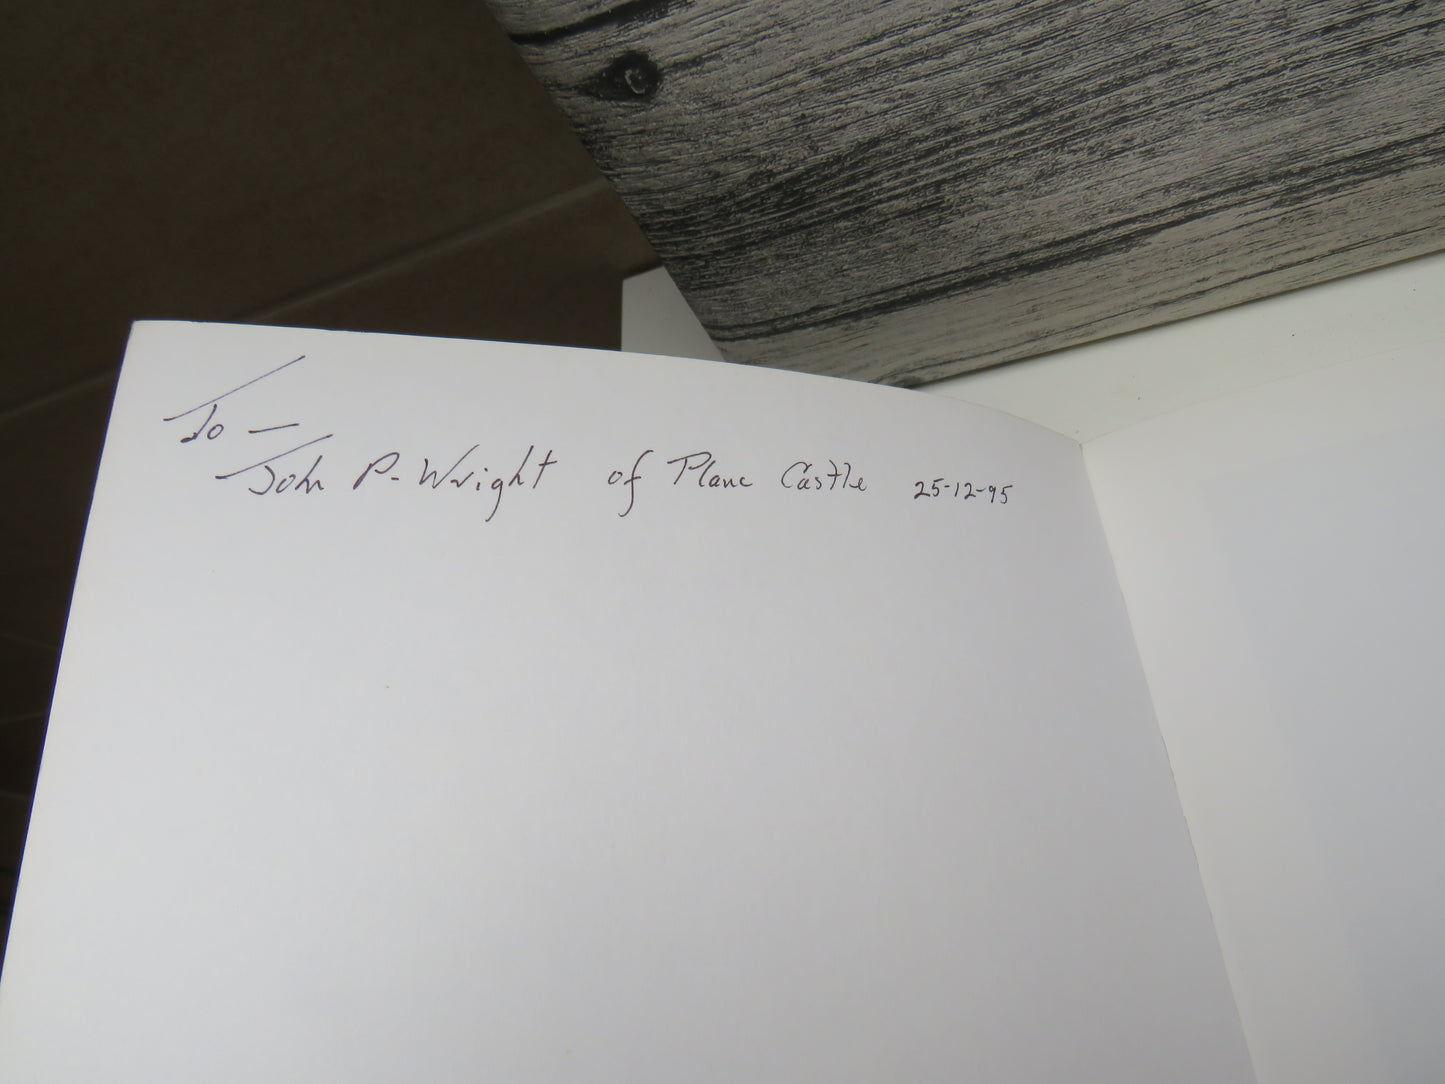 To —
John P. Wright of Plane Castle 25-12-95